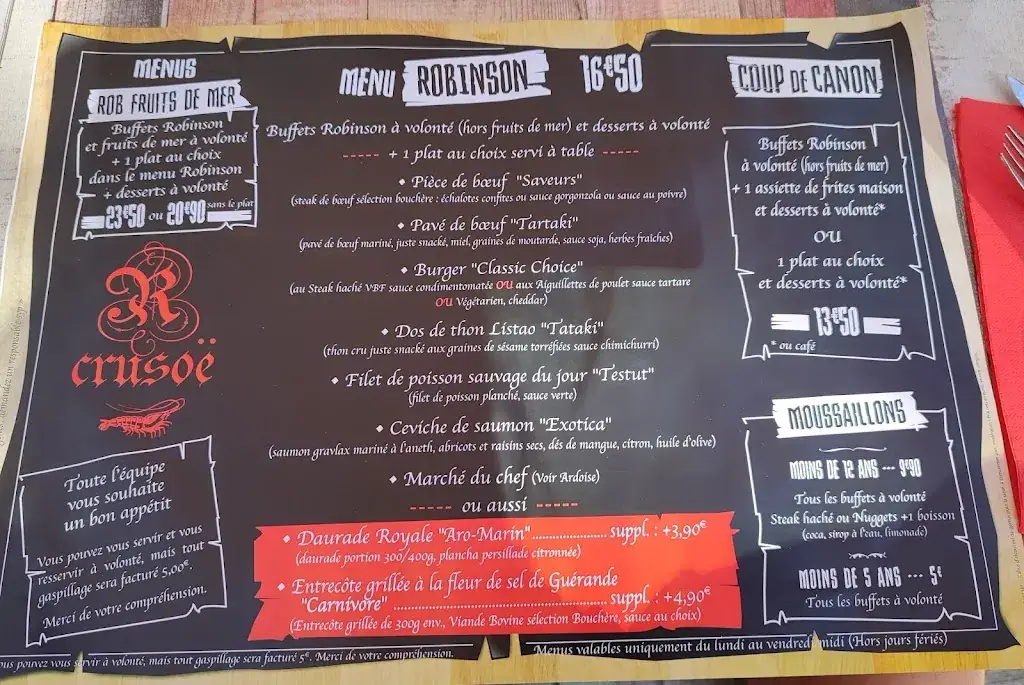 MENUS
ROB FRUITS DE MER
Buffets Robinson
et fruits de mer à volonté
+ 1 plat au choix
dans le menu Robinson
+ desserts à volonté
23€50 ou 20€90 sans le plat
R
&
crusoë
Toute l'équipe
vous souhaite
un bon appétit
Vous pouvez vous servir et vous
resservir à volonté, mais tout
gaspillage sera facturé 5,00€.
Merci de votre compréhension.
MENU ROBINSON 16€50
Buffets Robinson à volonté (hors fruits de mer) et desserts à volonté
----- + 1 plat au choix servi à table -----
• Pièce de bœuf "Saveurs"
(steak de bœuf sélection bouchère : échalotes confites ou sauce gorgonzola ou sauce au poivre)
• Pavé de bœuf "Tartaki"
(pavé de bœuf mariné, juste snacké, miel, graines de moutarde, sauce soja, herbes fraîches)
• Burger "Classic Choice"
(au Steak haché VBF sauce condimentomatée OU aux Aiguillettes de poulet sauce tartare
OU Végétarien, cheddar)
• Dos de thon Listao "Tataki"
(thon cru juste snacké aux graines de sésame torréfiées sauce chimichurri)
• Filet de poisson sauvage du jour "Testut"
(filet de poisson planché, sauce verte)
• Ceviche de saumon "Exotica"
(saumon gravlax mariné à l'aneth, abricots et raisins secs, dés de mangue, citron, huile d'olive)
• Marché du chef (Voir Ardoise)
----- ou aussi -----
• Daurade Royale "Aro-Marin"...................... suppl. : +3,90€
(daurade portion 300/400g, plancha persillade citronnée)
• Entrecôte grillée à la fleur de sel de Guérande
"Carnivore" ............................................. suppl. : +4,90€
(Entrecôte grillée de 300g env., Viande Bovine sélection Bouchère, sauce au choix)
COUP DE CANON
Buffets Robinson
à volonté (hors fruits de mer)
+ 1 assiette de frites maison
et desserts à volonté*
OU
1 plat au choix
et desserts à volonté*
13€50
* ou café
MOUSSAILLONS
MOINS DE 12 ANS --- 9€90
Tous les buffets à volonté
Steak haché ou Nuggets +1 boisson
(coca, sirop à l'eau, limonade)
MOINS DE 5 ANS --- 5€
Tous les buffets à volonté
pouvez vous servir à volonté, mais tout gaspillage sera facturé 5€. Merci de votre compréhension.
Menus valables uniquement du lundi au vendredi midi (Hors jours fériés)